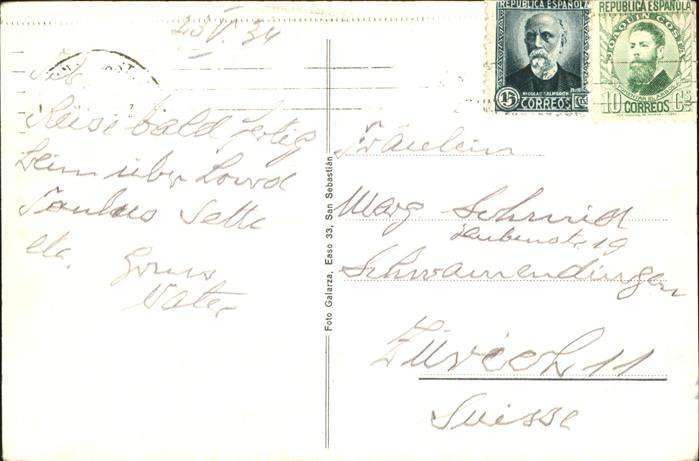 23 V. 34
Reise bald fertig
heim über Lourd
Toulus Sette
etc. Gruss
Vater
Foto Galarza, Easo 33, San Sebastián
REPUBLICA ESPAÑOLA
15 CORREOS
REPUBLICA ESPAÑOLA
JOAQUIN COSTA
10 CORREOS Cs
Fräulein
Marg Schmid
19
Schwamendingen
Zürich 11
Suisse